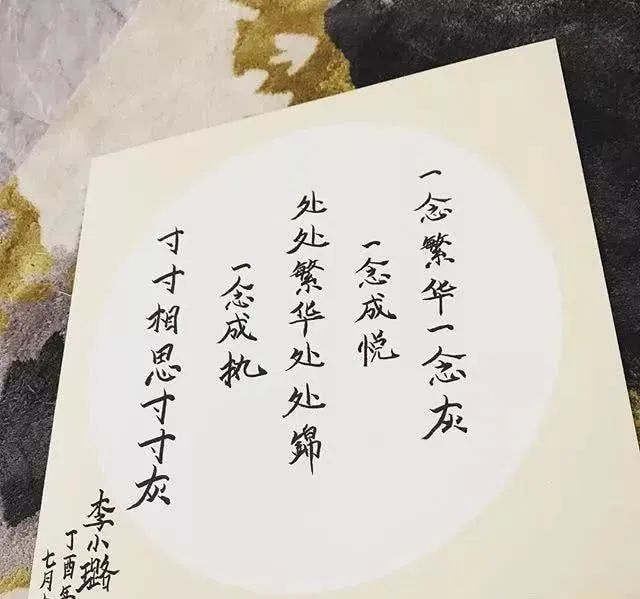 一念繁华一念灰
一念成悦
处处繁华处处錦
一念成执
寸寸相思寸寸灰
李小璐
丁酉年
七月